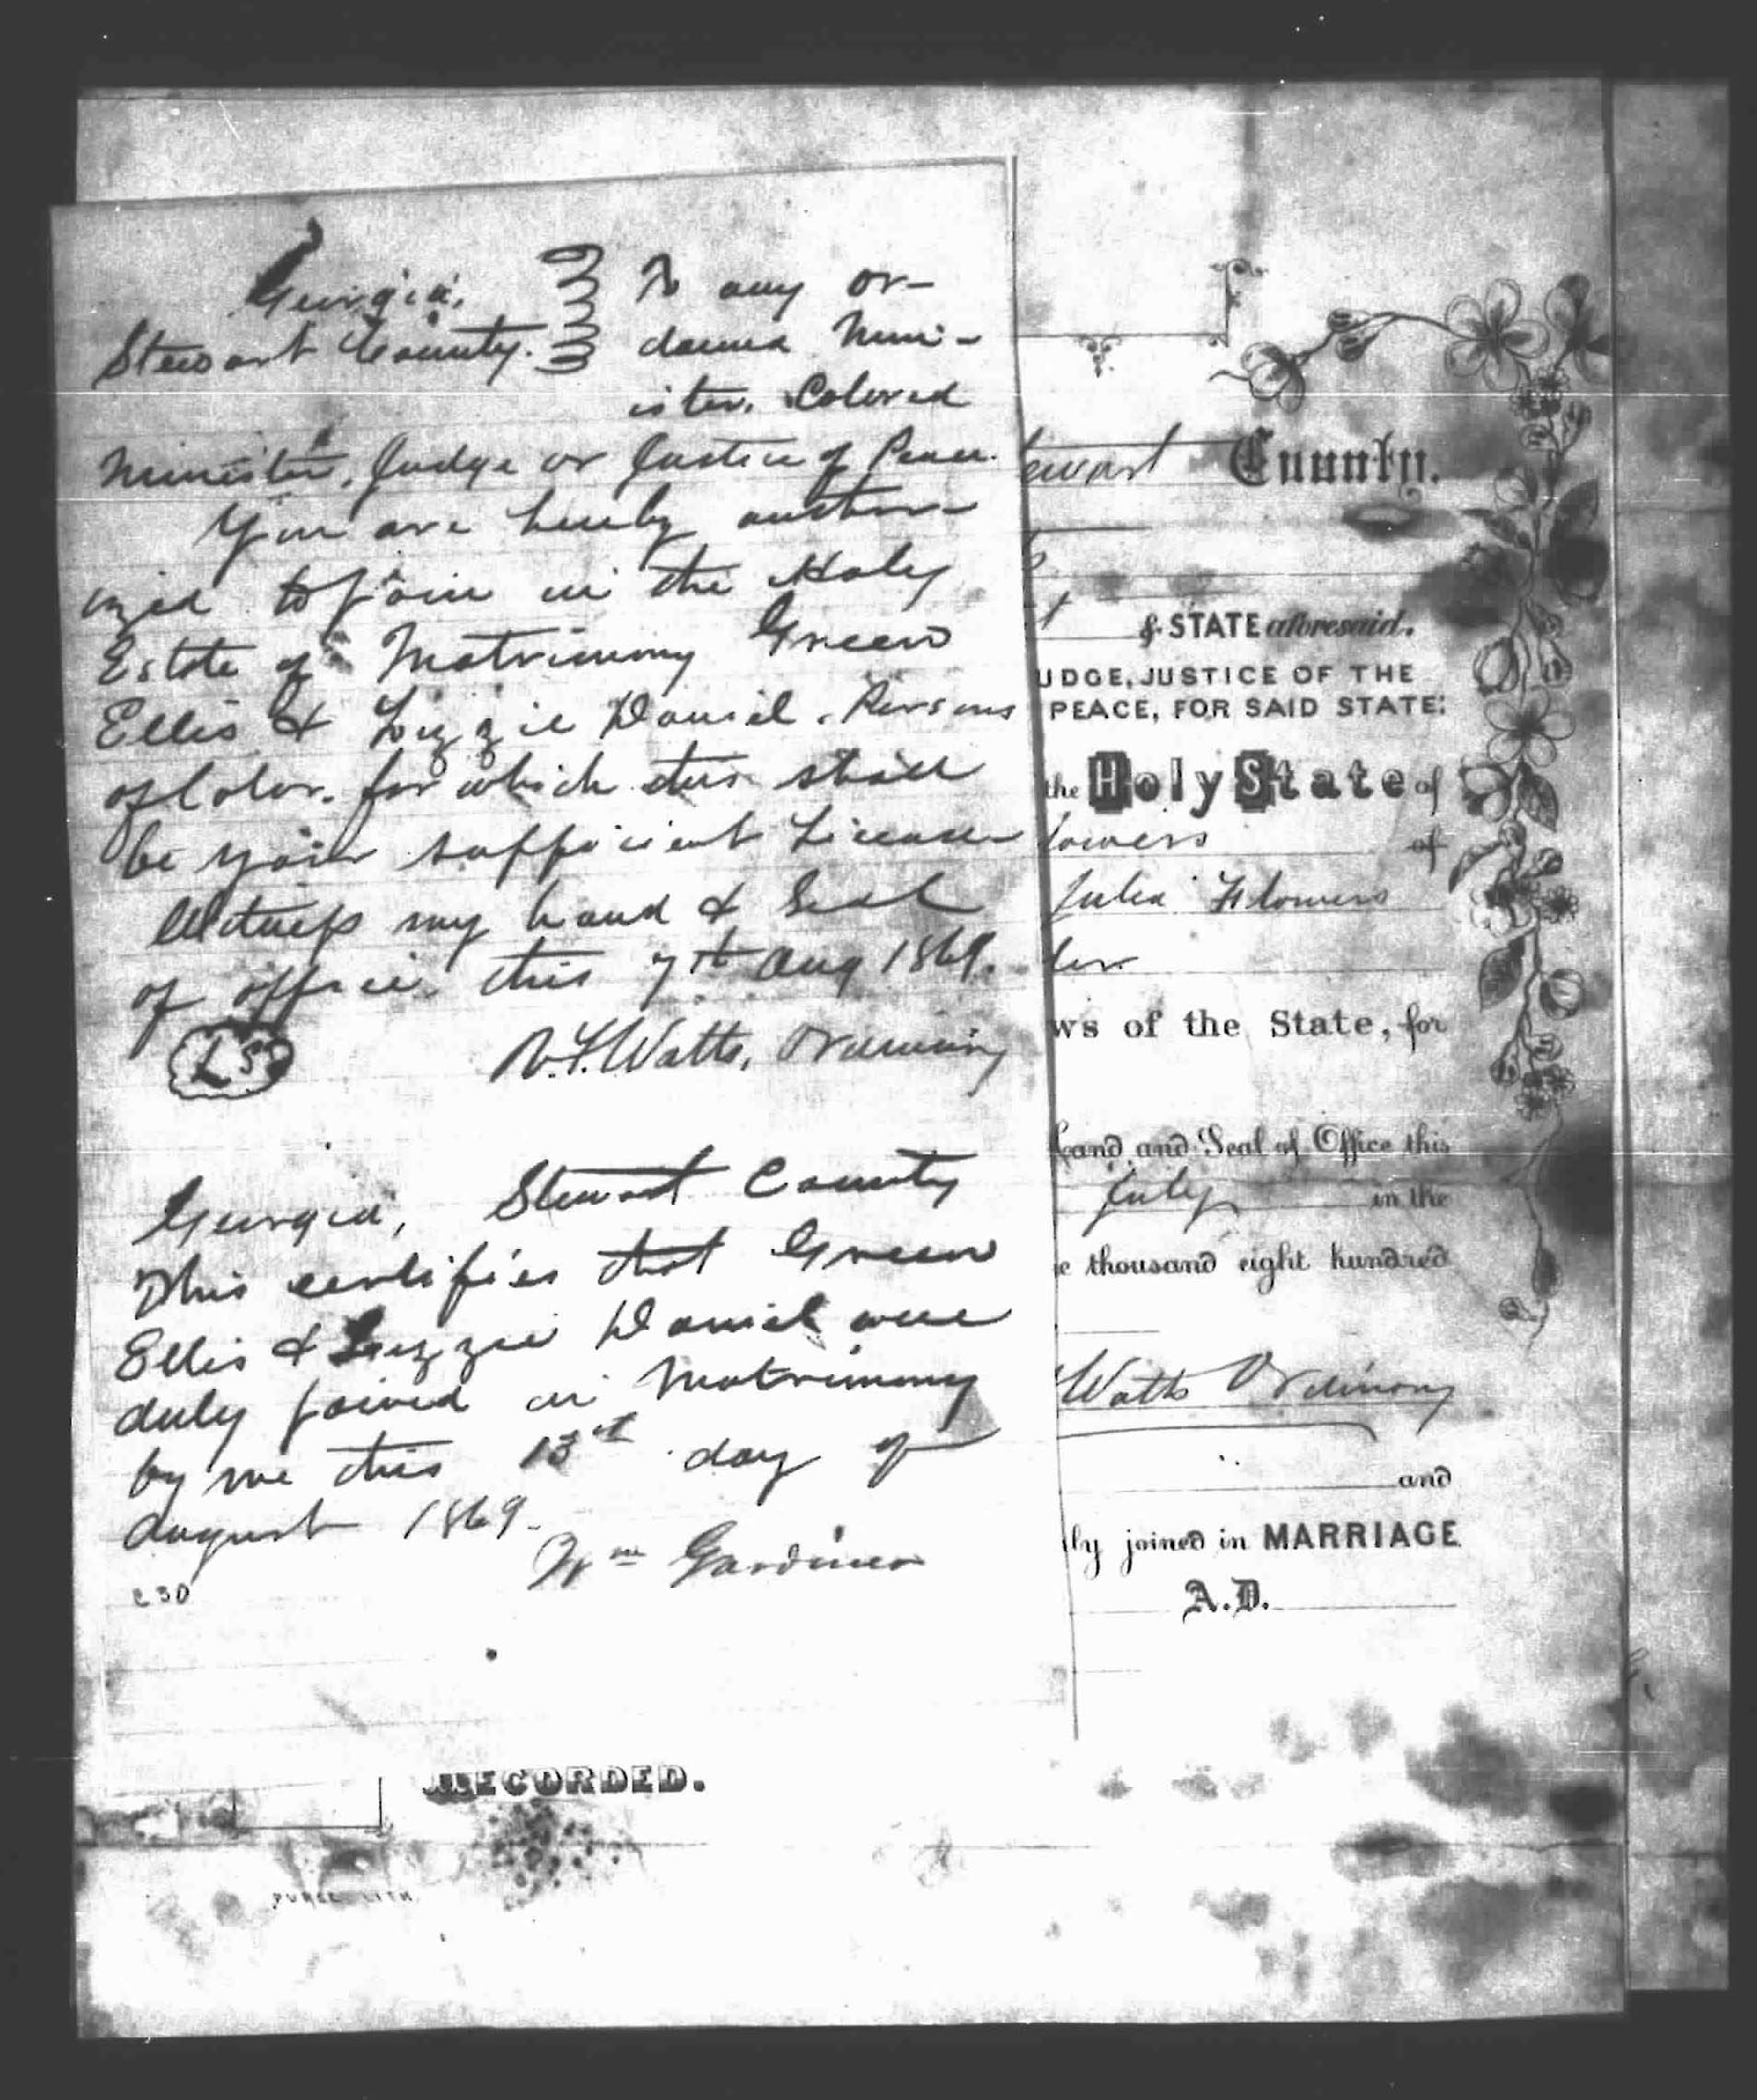 Georgia,
Stewart County.
To any or-
dained Min-
ister, Colored
Minister, Judge or Justice of Peace.
You are hereby author-
ized to join in the Holy
Estate of Matrimony Green
Ellis & Lizzie Daniel, Persons
of Color, for which this shall
be your sufficient License
Witness my hand & Seal
of office, this 7th Aug 1869.
L.S.
Watts, Ordinary
Georgia, Stewart County
This certifies that Green
Ellis & Lizzie Daniel were
duly joined in Matrimony
by me this 13th day of
August 1869.
Wm Gardiner
230
RECORDED.
ewart County.
t & STATE aforesaid.
UDGE, JUSTICE OF THE
PEACE, FOR SAID STATE:
the Holy State of
lowers of
Julia Flowers
lor
ws of the State, for
hand and Seal of Office this
July in the
e thousand eight hundred
Watts Ordinary
and
lly joined in MARRIAGE
A.D.